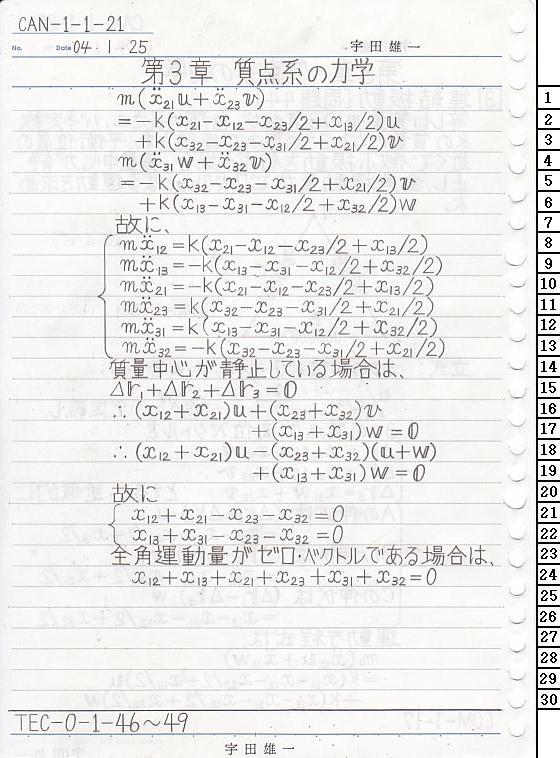 CAN-1-1-21
No. Date 04・1・25 宇田雄一
第3章 質点系の力学
m(ẍ₂₁u+ẍ₂₃v)
=-k(x₂₁-x₁₂-x₂₃/2+x₁₃/2)u
+k(x₃₂-x₂₃-x₃₁/2+x₂₁/2)v
m(ẍ₃₁w+ẍ₃₂v)
=-k(x₃₂-x₂₃-x₃₁/2+x₂₁/2)v
+k(x₁₃-x₃₁-x₁₂/2+x₃₂/2)w
故に、
mẍ₁₂=k(x₂₁-x₁₂-x₂₃/2+x₁₃/2)
mẍ₁₃=-k(x₁₃-x₃₁-x₁₂/2+x₃₂/2)
mẍ₂₁=-k(x₂₁-x₁₂-x₂₃/2+x₁₃/2)
mẍ₂₃=k(x₃₂-x₂₃-x₃₁/2+x₂₁/2)
mẍ₃₁=k(x₁₃-x₃₁-x₁₂/2+x₃₂/2)
mẍ₃₂=-k(x₃₂-x₂₃-x₃₁/2+x₂₁/2)
質量中心が静止している場合は、
Δr₁+Δr₂+Δr₃=0
∴(x₁₂+x₂₁)u+(x₂₃+x₃₂)v
+(x₁₃+x₃₁)w=0
∴(x₁₂+x₂₁)u-(x₂₃+x₃₂)(u+w)
+(x₁₃+x₃₁)w=0
故に
x₁₂+x₂₁-x₂₃-x₃₂=0
x₁₃+x₃₁-x₂₃-x₃₂=0
全角運動量がゼロ・ベクトルである場合は、
x₁₂+x₁₃+x₂₁+x₂₃+x₃₁+x₃₂=0
TEC-0-1-46~49
宇田雄一
1
2
3
4
5
6
7
8
9
10
11
12
13
14
15
16
17
18
19
20
21
22
23
24
25
26
27
28
29
30